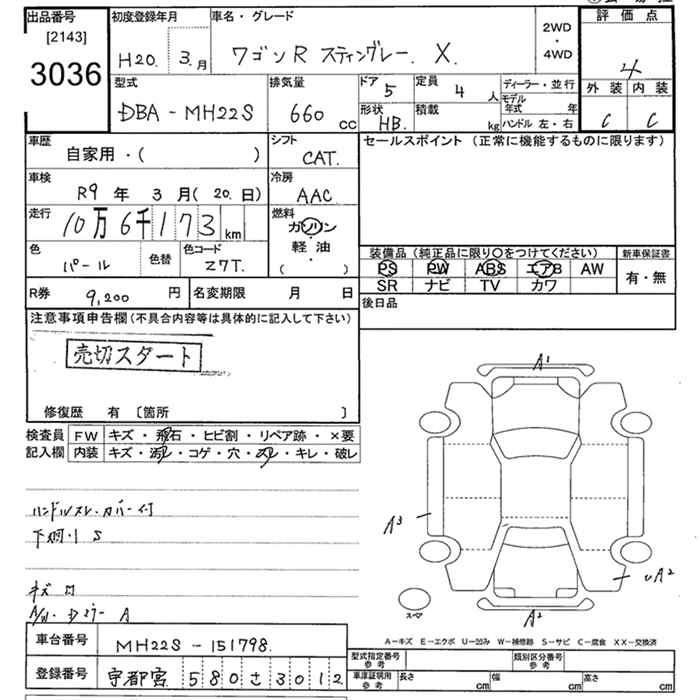 出品番号
[2143]
3036
初度登録年月
H20. 3.月
車名・グレード
ワゴンR スティングレー. X.
2WD
・
4WD
評価点
4
外装 内装
C C
型式
DBA-MH22S
排気量
660 cc
ドア 5
定員 4 人
形状 HB.
積載 kg
ディーラー・並行
モデル年式 年
ハンドル 左・右
車歴
自家用・( )
シフト
CAT.
セールスポイント (正常に機能するものに限ります)
車検
R9 年 3 月( 20. 日)
冷房
AAC
走行
10万6千173 km
燃料
ガソリン
・
軽・油
( )
色
パール
色替
色コード
Z7T.
装備品 (純正品に限り〇をつけてください)
新車保証書
PS PW ABS エアB AW
SR ナビ TV カワ
有・無
R券 9,200 円
名変期限 月 日
後日品
注意事項申告欄(不具合内容等は具体的に記入して下さい)
売切スタート
修復歴 有 〔箇所 〕
検査員
記入欄
FW キズ・飛石・ヒビ割・リペア跡・×要
内装 キズ・汚レ・コゲ・穴・スレ・キレ・破レ
ハンドルスレ・カバー付
下廻り S
キズ
A
A1
A3
A2
A2
スペア
A-キズ E-エクボ U-凹み W-補修跡 S-サビ C-腐食 XX-交換済
車台番号
MH22S-151798.
登録番号
宇都宮 580さ3012
型式指定番号
参考
類別区分番号
参考
車庫証明用
参考
長さ cm
幅 cm
高さ cm